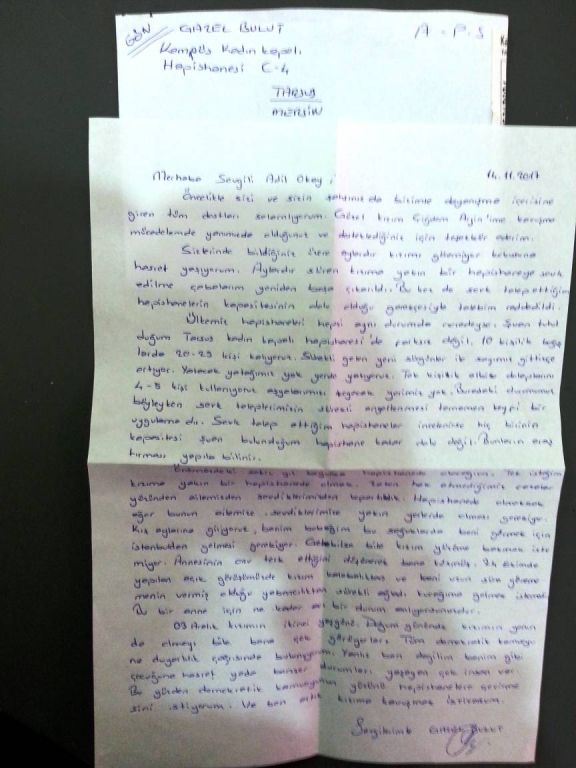 GÖN GAZEL BULUT A-P.S
Kampüs Kadın Kapalı
Hapishanesi C-4
TARSUS
MERSİN
Merhaba Sevgili Adil Okay, 14.11.2017
Öncelikle sizi ve sizin şahsınızda bizimle dayanışma içerisine
giren tüm dostları selamlıyorum. Güzel kızım Çiğdem kavuşma
mücadelemde yanımda olduğunuz ve desteklediğiniz için teşekkür ederim.
Sizlerinde bildiğiniz üzere aylardır kızımı göremiyor kokusuna
hasret yaşıyorum. Aylardır süren kızıma yakın bir hapishaneye sevk
edilme çabalarım yeniden boşa çıkarıldı. Bu kez de sevk talep ettiğim
hapishanelerin kapasitesinin dolu olduğu gerekçesiyle talebim reddedildi.
Ülkemiz hapishaneleri hepsi aynı durumda neredeyse. Şuan tutul
duğum Tarsus kadın kapalı hapishanesi'de farksız değil. 10 kişilik koğuş
larda 20-25 kişi kalıyoruz. Sürekli gelen yeni sürgünler ile sayımız gittikçe
artıyor. Yatacak yatağımız yok yerde yatıyoruz. Tek kişilik elbise dolaplarını
4-5 kişi kullanıyoruz eşyalarımızı koyacak yerimiz yok. Buradaki durumumuz
böyleyken sevk taleplerimizin sürekli engellenmesi tamamen keyfi bir
uygulamadır. Sevk talep ettiğim hapishaneler incelense hiç birinin
kapasitesi şuan bulunduğum hapishane kadar dolu değil. Bunların araş
tırması yapıla bilinir.
Önümdeki yıl boyunca hapishanede olacağım. Tek isteğim
kızıma yakın bir hapishanede olmak. Zaten hak etmediğimiz cezalar
yüzünden ailemizden sevdiklerimizden koparıldık. Hapishanede olmaksak
eğer bunun ailemize, sevdiklerimize yakın yerlerde olması gerekiyor.
Kış aylarına giriyoruz, benim bebeğim bu soğuklarda beni görmek için
İstanbuldan gelmesi gerekiyor. Gelebilse bile kızım yüzüme bakmak iste
miyor. Annesinin onu terk ettiğini düşünerek bana küsmüş. 24 ekimde
yapılan açık görüşümüzde kızım kalabalıktan ve beni uzun süre göreme
menin vermiş olduğu yabancılıktan sürekli ağladı kucağıma gelmek istemedi.
Bu bir anne için ne kadar acı bir durum anlıyorsunuzdur.
03 Aralık kızımın ikinci yaşgünü. Doğum gününde kızımın yanın
da olmayı bile bana çok görüyorlar. Tüm demokratik kamuoyu
na duyarlılık çağrısında bulunuyorum. Yanlız ben değilim benim gibi
çocuğuna hasret yada benzer durumları yaşayan çok insan var.
Bu yüzden demokratik kamuoyunun yüzünü hapishanelere çevirme
sini istiyorum. Ve ben artık kızıma kavuşmak istiyorum.
Sevgilerimle GAZEL BULUT